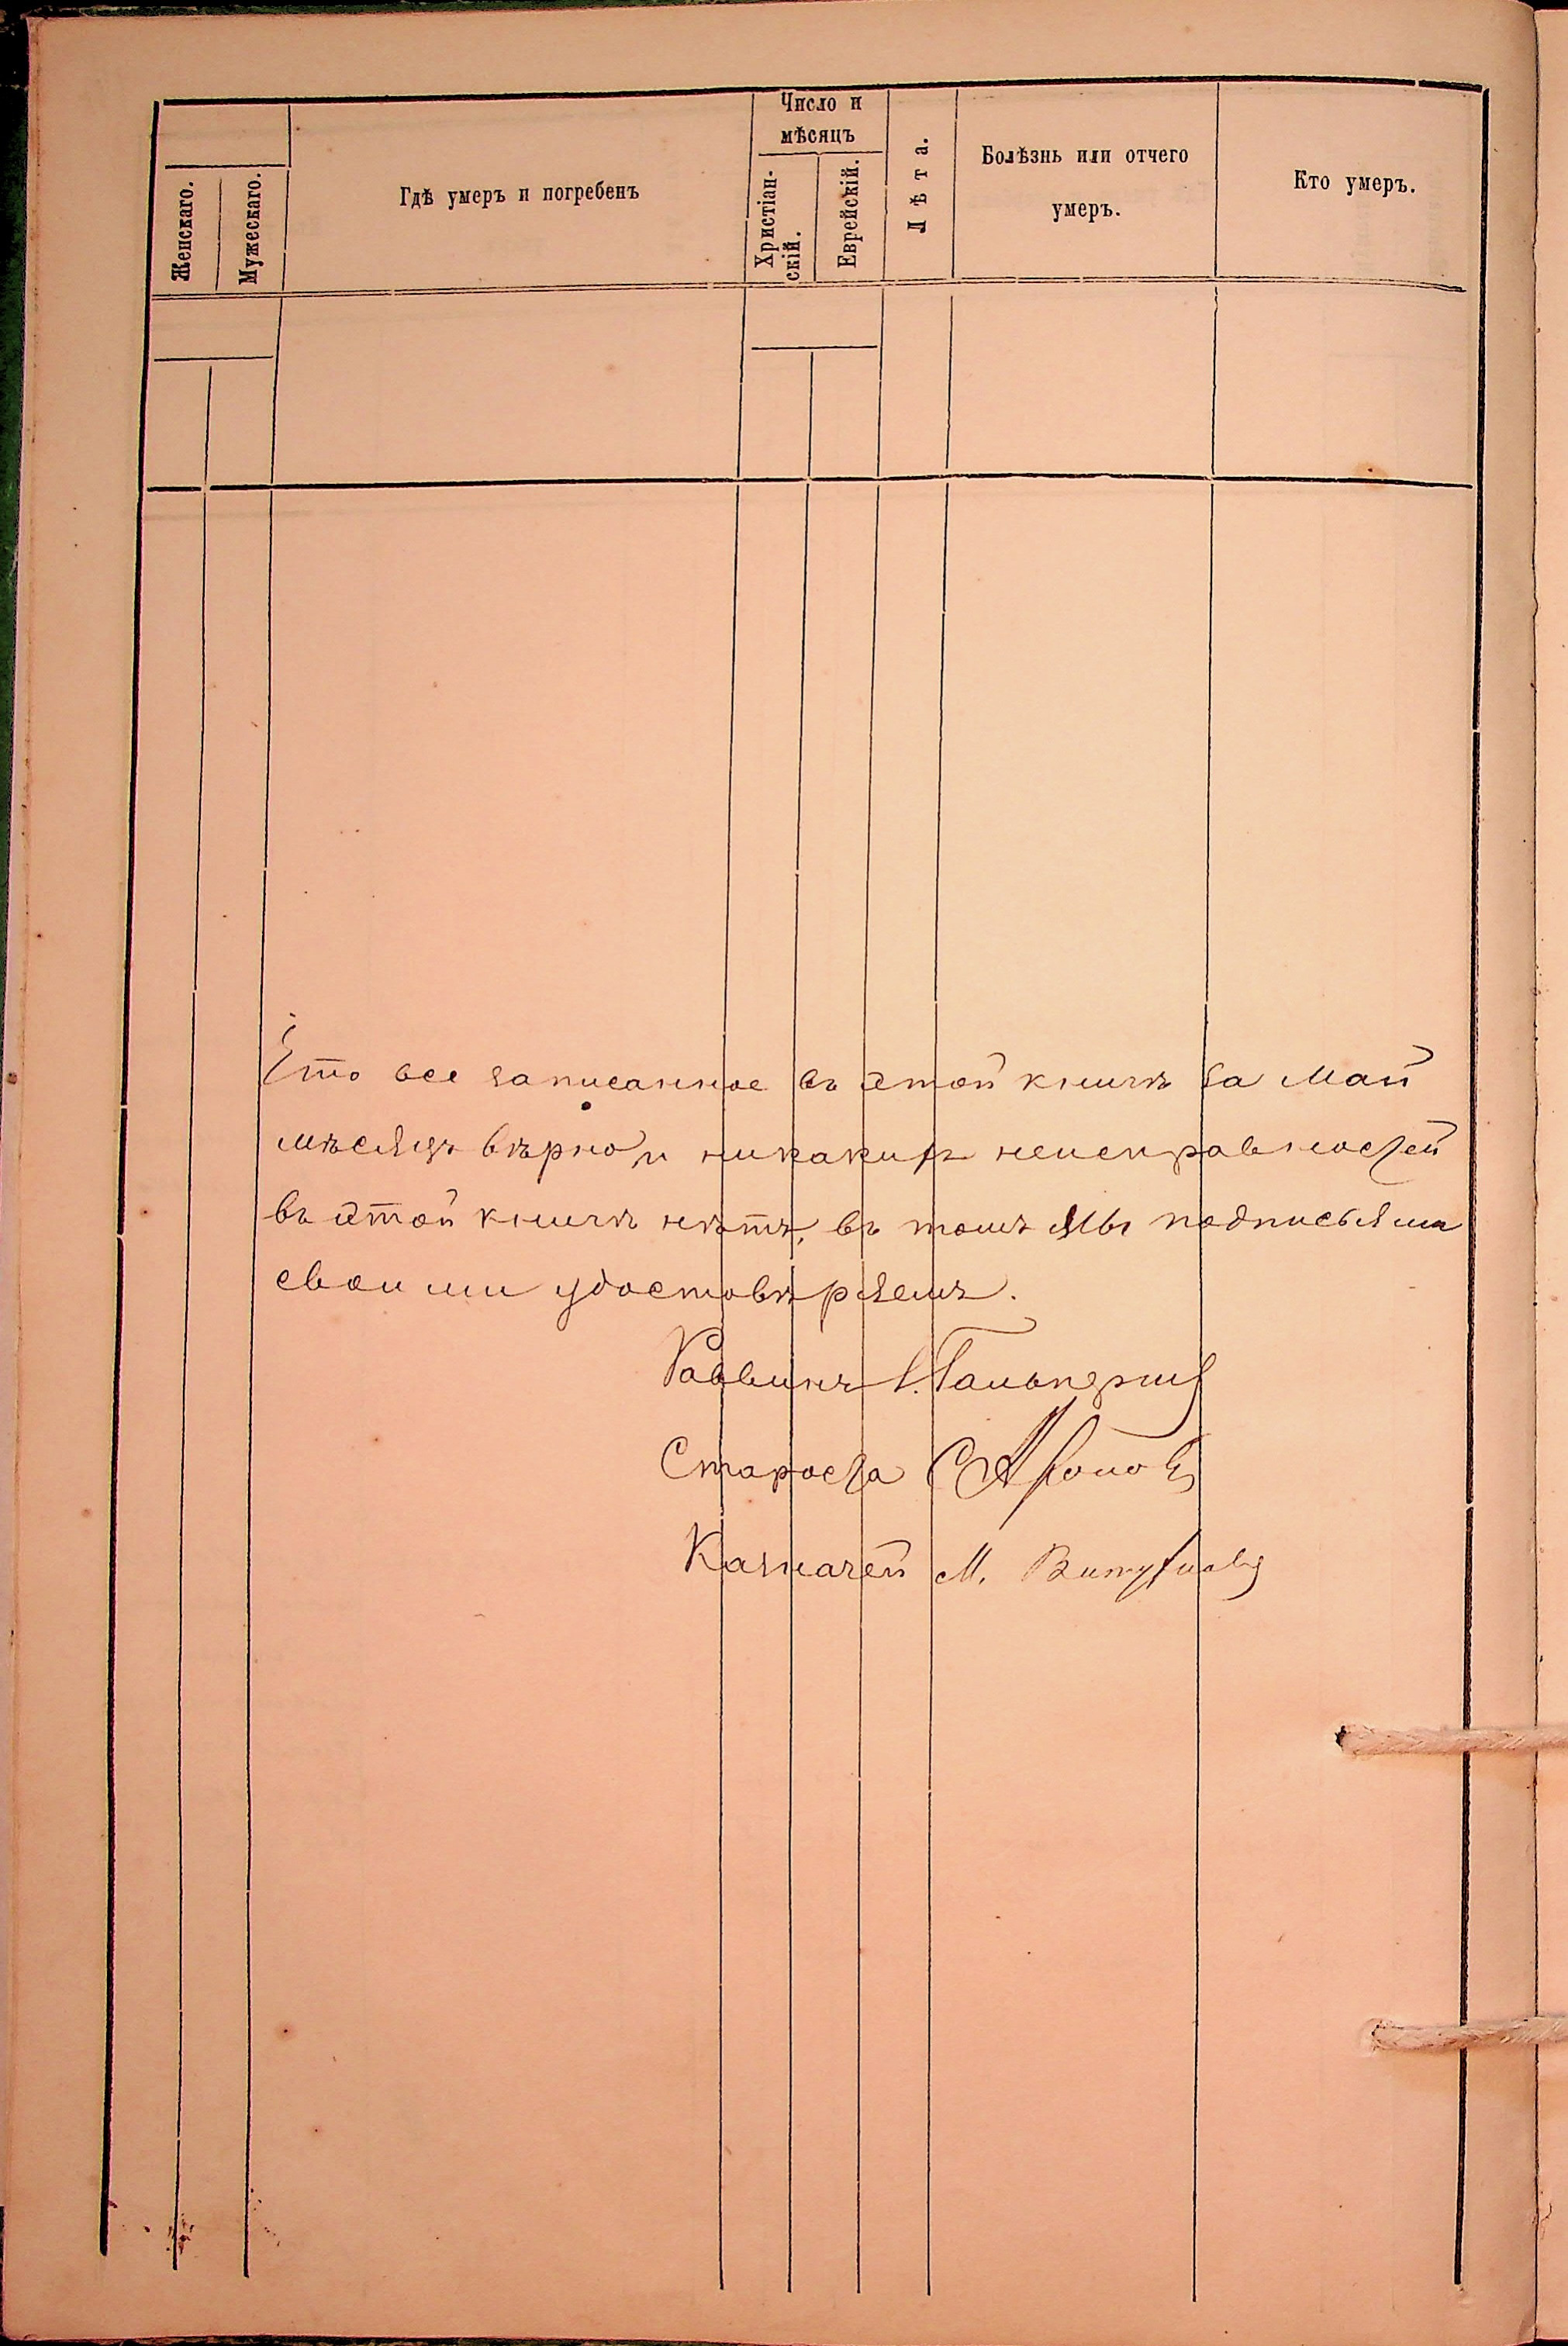 Женскаго.
Мужескаго.
Гдѣ умеръ и погребенъ
Число и
мѣсяцъ
Христіан-
скій.
Еврейскій.
Лѣта.
Болѣзнь или отчего
умеръ.
Кто умеръ.
Что все записанное въ этой книгѣ за Май
мѣсяцъ вѣрно, и никакихъ неисправностей
въ этой книгѣ нѣтъ, въ томъ мы подписьями
своими удостовѣряемъ.
Раввинъ Гальперинъ
Староста С Ароновъ
Казначей М.